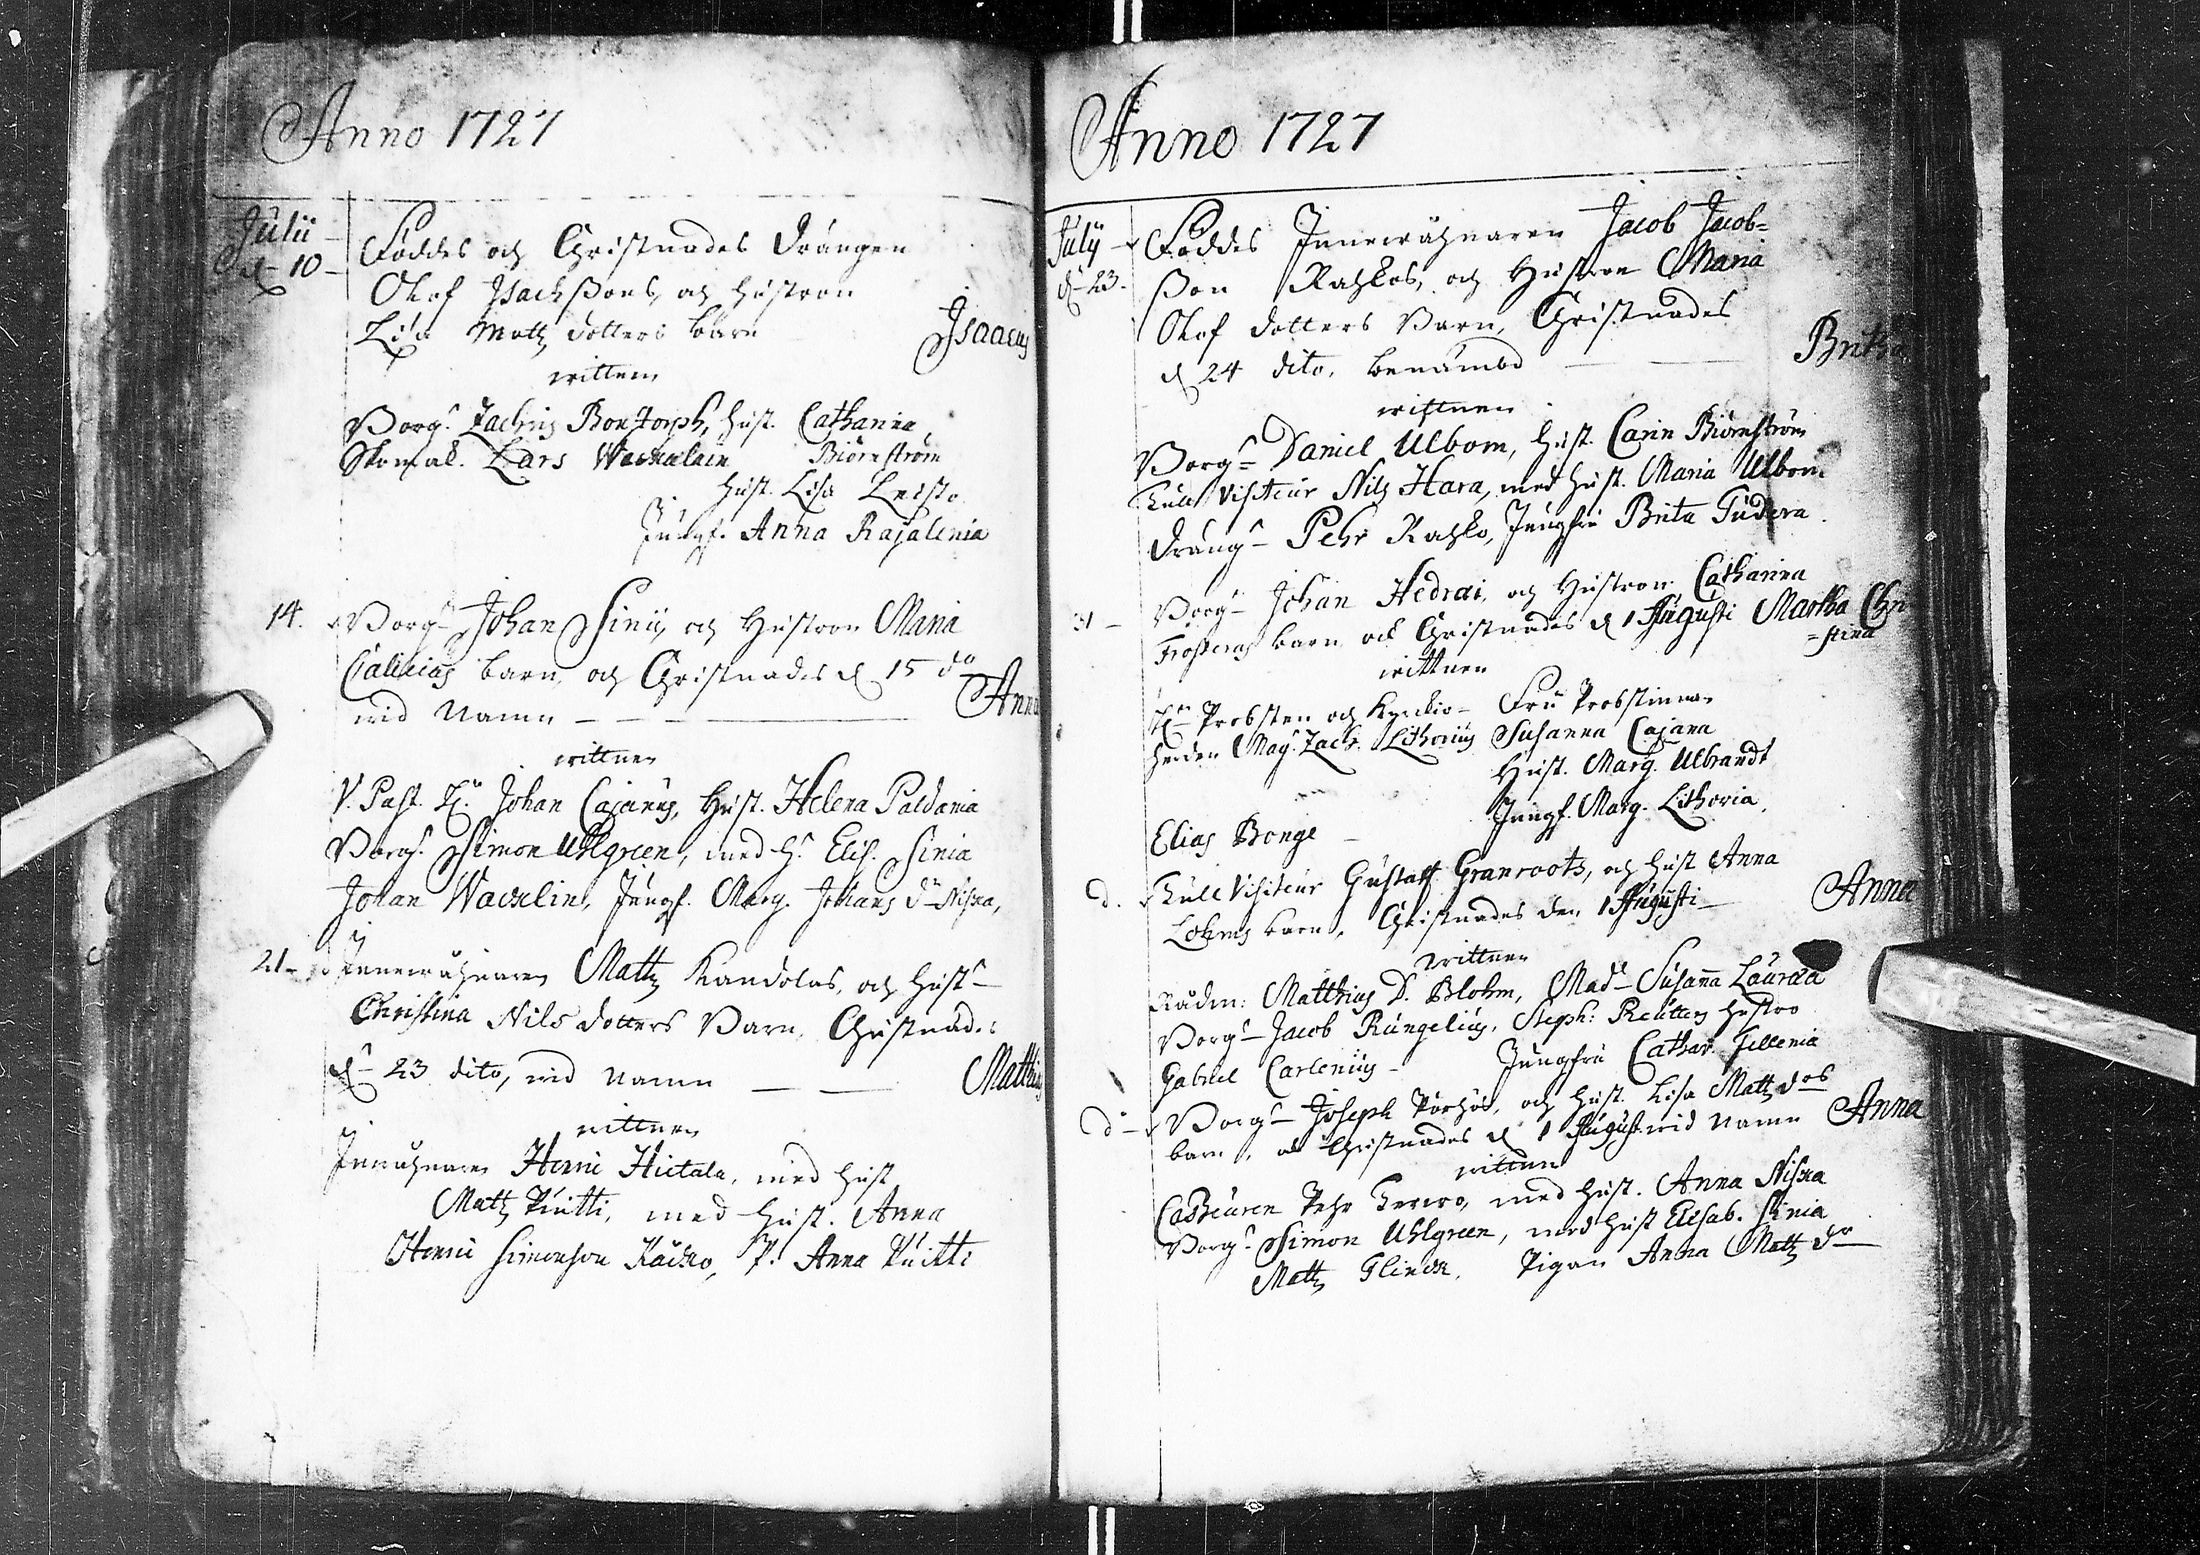 Anno 1727
Julii
d. 10
Föddes och Christnades Drängen
Olof Isachssons, och hustron
Lisa Matts dotters barn
Isaacus
wittnen
Borg. Zachris Bontorph, hust. Catharina
Skomak. Lars Wacklin Biörnström
hust. Lisa Leisto
Jungf. Anna Rajalenia
14. Borg. Johan Sinii, och Hustron Maria
Calinias barn, och Christnades d. 15 do
wid Namn Anna
wittnen
V. Past. H. Johan Cajanus, Hust. Helena Paldania
Borg. Simon Uhlgreen, med H. Elis. Sinia
Johan Wacklin, Jungf. Marg. Johans dr Niska,
21 Innewåhnaren Matts Kandolas, och Hust.
Christina Nils dotters Barn, Christnades
d. 23 dito, wid Namn Matthias
wittnen
Inwåhnaren Henric Hietala, med hust
Matts Kuitti, med hust. Anna
Henric Simonson Käcko, P. Anna Kuitti
Anno 1727
July
d. 23.
Föddes Innewåhnaren Jacob Jacob=
sson Rahkos, och Hustron Maria
Olof dotters Barn, Christnades
d. 24 dito, benämbd Brita
wittnen
Borg. Daniel Ulbom, hust. Carin Biörnström
Tull Visiteur Nils Hara, med hust. Maria Ulbom
Dräng. Pehr Rahko, Jungfru Brita Tudera.
31 Borg. Johan Hedrai, och Hustron Catharina
Frosterus barn och Christnades d. 1 Augusti Martha Chri
=stina
wittnen
H. Probsten och Kyrckio- Fru Probstinnan
herden Mag. Zach. Lithovius Susanna Cajana
Hust. Marg. Ulbrandt
Elias Bonge Jungf. Marg. Lithovia.
d. Tull Visiteur Gustaff Granroots, och hust Anna
Lohms barn, Christnades den 1 Augusti Anna
wittnen
Rådm: Matthias D. Blohm, Mad. Susanna Lauræa
Borg. Jacob Rungelius, Steph: Reutters hustro
Gabriel Carlenius Jungfru Cathar. Fellenia
d. Borg. Joseph Pörhös, och hust. Lisa Matts drs
barn, och Christnades d. 1 August. wid Namn Anna
wittnen
Casseuren Pehr Terwo, med hust. Anna Niska
Borg. Simon Uhlgreen, med hust Elisab. Sinia
Matts Flinck, Pigan Anna Matts dr